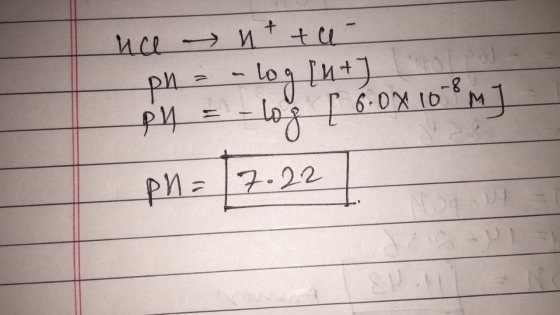 HCl → H⁺ + Cl⁻
pH = -log [H+]
pH = -log [6.0 X 10⁻⁸ M]
pH = 7.22